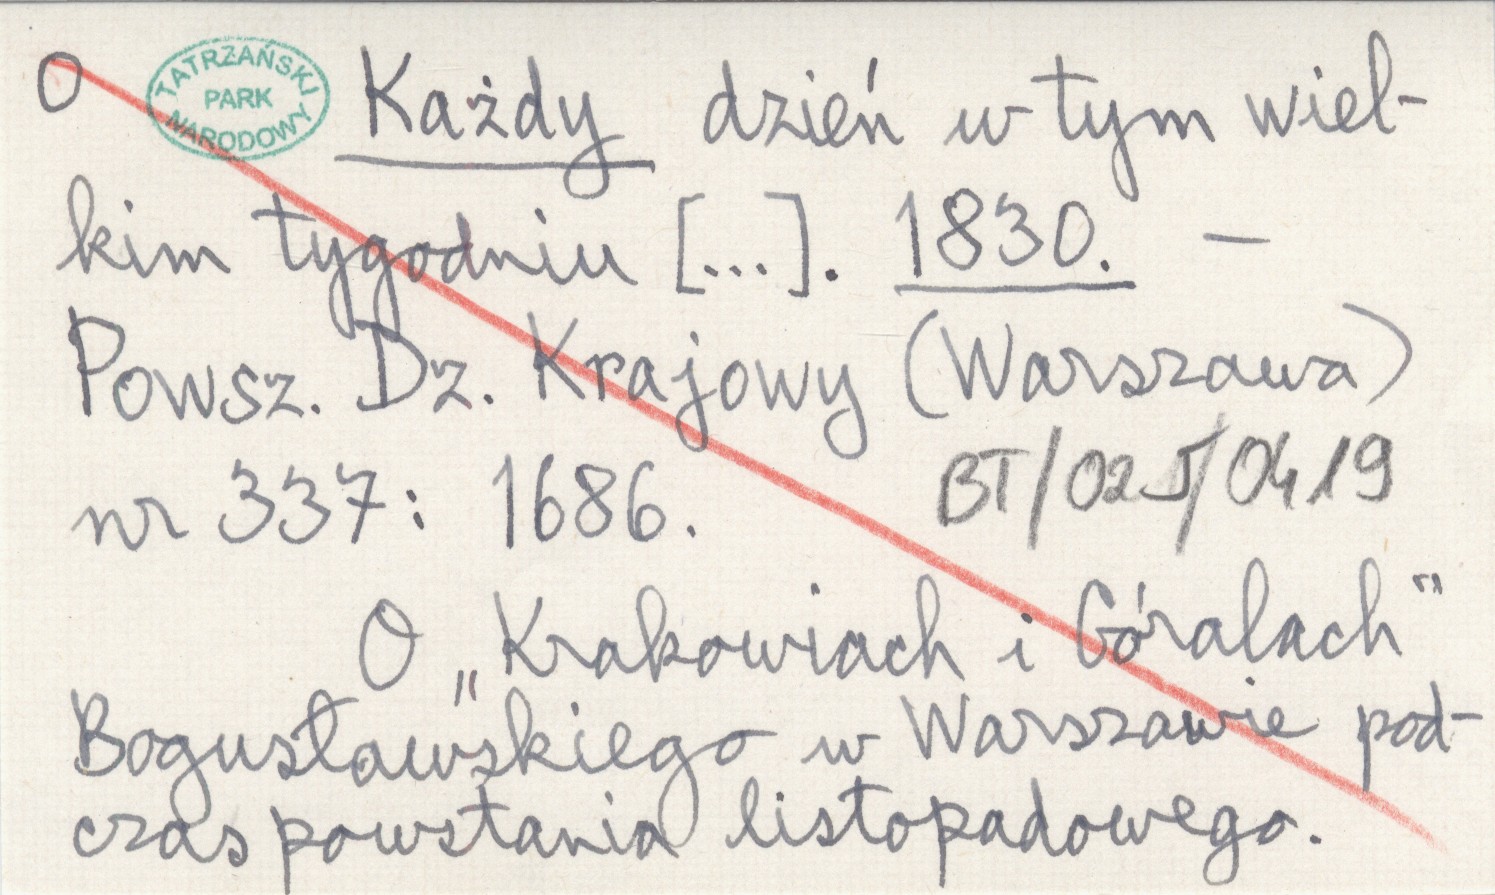 O TATRZAŃSKI PARK NARODOWY Każdy dzień w tym wiel-
kim tygodniu [...]. 1830. –
Powsz. Dz. Krajowy (Warszawa)
nr 337: 1686.
BT/025/0419
O „Krakowiach i Góralach"
Bogusławskiego w Warszawie pod-
czas powstania listopadowego.